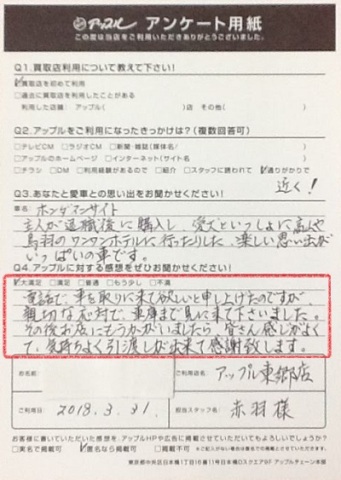 アップル アンケート用紙
この度は当店をご利用いただきありがとうございました。
Q1.買取店利用について教えて下さい!
☑買取店を初めて利用
□過去に買取店を利用したことがある
利用した店舗 アップル( )店 その他( )
Q2.アップルをご利用になったきっかけは?(複数回答可)
□テレビCM □ラジオCM □新聞・雑誌(媒体名/ )
□アップルのホームページ □インターネット(サイト名 )
□チラシ □DM □利用経験があるので □紹介 □スタッフに誘われて ☑通りがかりで
近く!
Q3.あなたと愛車との思い出をお聞かせください!
車名 ホンダマンサイト
主人が退職後に購入し、愛犬といっしょに高山や
鳥羽のワンワンホテルに行ったりした、楽しい思い出が
いっぱいの車です。
Q4.アップルに対する感想をぜひお聞かせください!
☑大満足 □満足 □普通 □もう少し □不満
電話で、車を取りに来て欲しいと申し上げたのですが、
親切な応対で、車庫まで見に来て下さいました。
その後お店にもうかがいましたら、皆さん感じがよく
て、気持ちよく引渡しが出来て感謝致します。
お名前
ご利用店名 アップル東郷店
ご利用日 2018.3.31.
担当スタッフ名 赤羽様
お客様に書いていただいた感想を、アップルHPや広告に掲載させていただいてもよろしいでしょうか?
□実名で掲載可 ☑匿名なら掲載可 □掲載不可
東京都中央区日本橋1丁目16番11号日本橋Dスクエア8F アップルチェーン本部